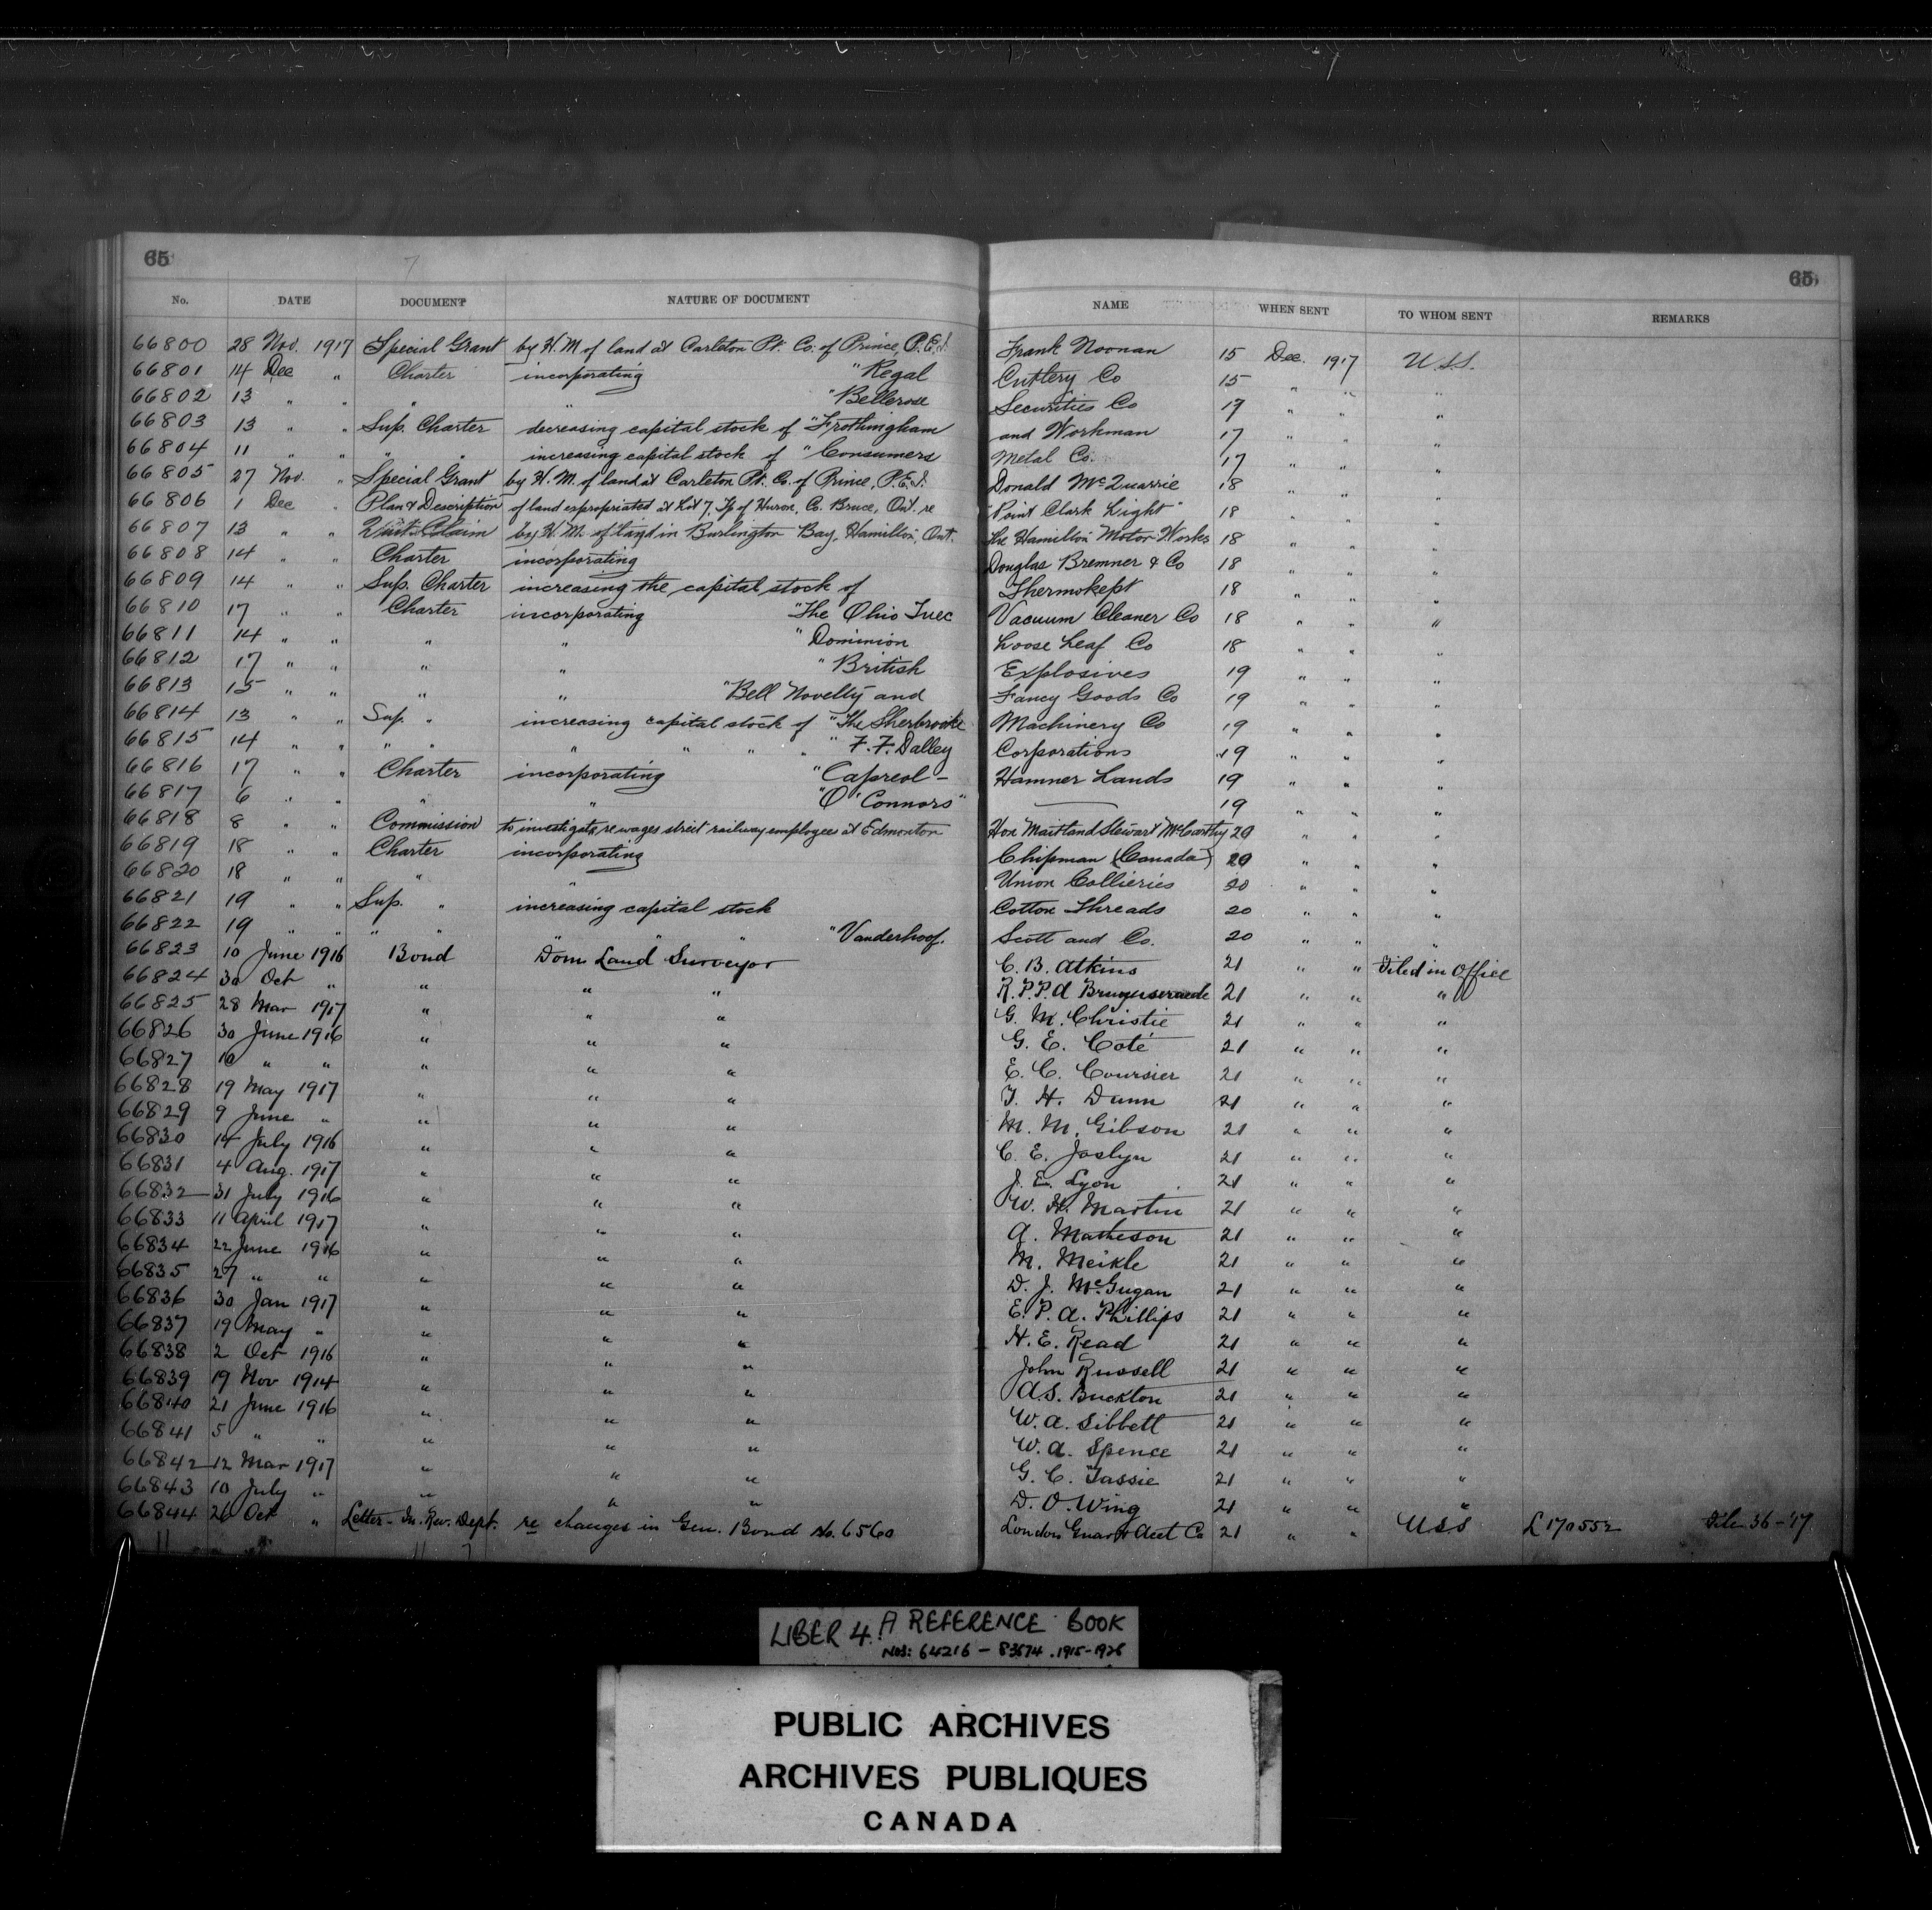 65 65
No. DATE DOCUMENT NATURE OF DOCUMENT NAME WHEN SENT TO WHOM SENT REMARKS
66800 28 Nov. 1917 Special Grant by H.M of land at Carleton Pt. Co. of Prince, P.E.I. Frank Noonan 15 Dec. 1917 U.S.S.
66801 14 Dec " Charter incorporating "Regal Cutlery Co 15 " " "
66802 13 " " " " "Bellerose Securities Co 17 " " "
66803 13 " " Sup. Charter decreasing capital stock of "Frothingham and Workman 17 " " "
66804 11 " " " " increasing capital stock of "Consumers Metal Co. 17 " " "
66805 27 Nov. " Special Grant by H.M. of land at Carleton Pt. Co. of Prince, P.E.I. Donald McQuarrie 18 " " "
66806 1 Dec " Plan & Description of land expropriated at Lot 7, Tp of Huron, Co. Bruce, Ont. re "Point Clark Light" 18 " " "
66807 13 " " Quit Claim by H.M. of land in Burlington Bay, Hamilton, Ont. The Hamilton Motor Works 18 " " "
66808 14 " " Charter incorporating Douglas Bremner & Co 18 " " "
66809 14 " " Sup. Charter increasing the capital stock of Thermokept 18 " " "
66810 17 " " Charter incorporating "The Ohio Tuec Vacuum Cleaner Co 18 " " "
66811 14 " " " " "Dominion Loose Leaf Co 18 " " "
66812 17 " " " " "British Explosives 19 " " "
66813 15 " " " " "Bell Novelty and Fancy Goods Co 19 " " "
66814 13 " " Sup. " increasing capital stock of "The Sherbrooke Machinery Co 19 " " "
66815 14 " " " " " " " " "F.F. Dalley Corporations 19 " " "
66816 17 " " Charter incorporating "Capreol - Hanmer Lands 19 " " "
66817 6 " " " " "O'Connors" — 19 " " "
66818 8 " " Commission to investigate re wages street railway employees at Edmonton Hon Maitland Stewart McCarthy 20 " " "
66819 18 " " Charter incorporating Chipman (Canada) 20 " " "
66820 18 " " " " Union Collieries 20 " " "
66821 19 " " Sup. " increasing capital stock Cotton Threads 20 " " "
66822 19 " " " " " " " "Vanderhoof. Scott and Co. 20 " " "
66823 10 June 1916 Bond Dom Land Surveyor C. B. Atkins 21 " " Filed in Office
66824 30 Oct " " " " R. P. P. A 21 " " "
66825 28 Mar 1917 " " " G. M. Christie 21 " " "
66826 30 June 1916 " " " G. E. Coté 21 " " "
66827 10 " " " " " E. C. Coursier 21 " " "
66828 19 May 1917 " " " T. H. Dunn 21 " " "
66829 9 June " " " " M. M. Gibson 21 " " "
66830 14 July 1916 " " " C. E. Joslyn 21 " " "
66831 4 Aug. 1917 " " " J. E. Lyon 21 " " "
66832 31 July 1916 " " " W. H. Martin 21 " " "
66833 11 April 1917 " " " A. Matheson 21 " " "
66834 22 June 1916 " " " M. Meikle 21 " " "
66835 27 " " " " " D. J. McGugan 21 " " "
66836 30 Jan 1917 " " " E. P. A. Phillips 21 " " "
66837 19 May " " " " H. E. Read 21 " " "
66838 2 Oct 1916 " " " John Russell 21 " " "
66839 19 Nov 1914 " " " A. S. Buckton 21 " " "
66840 21 June 1916 " " " W. A. Sibbett 21 " " "
66841 5 " " " " " W. A. Spence 21 " " "
66842 12 Mar 1917 " " " G. C. Tassie 21 " " "
66843 10 July " " " " D. O. Wing 21 " " "
66844 26 Oct " Letter - In. Rev. Dept. re changes in Gen. Bond No. 6560 London Guar & Acct Co 21 " " U S S L 170552 File 36-'17
LIBER 4. A REFERENCE BOOK
NOS: 64216 - 83674 . 1915-1926
PUBLIC ARCHIVES
ARCHIVES PUBLIQUES
CANADA